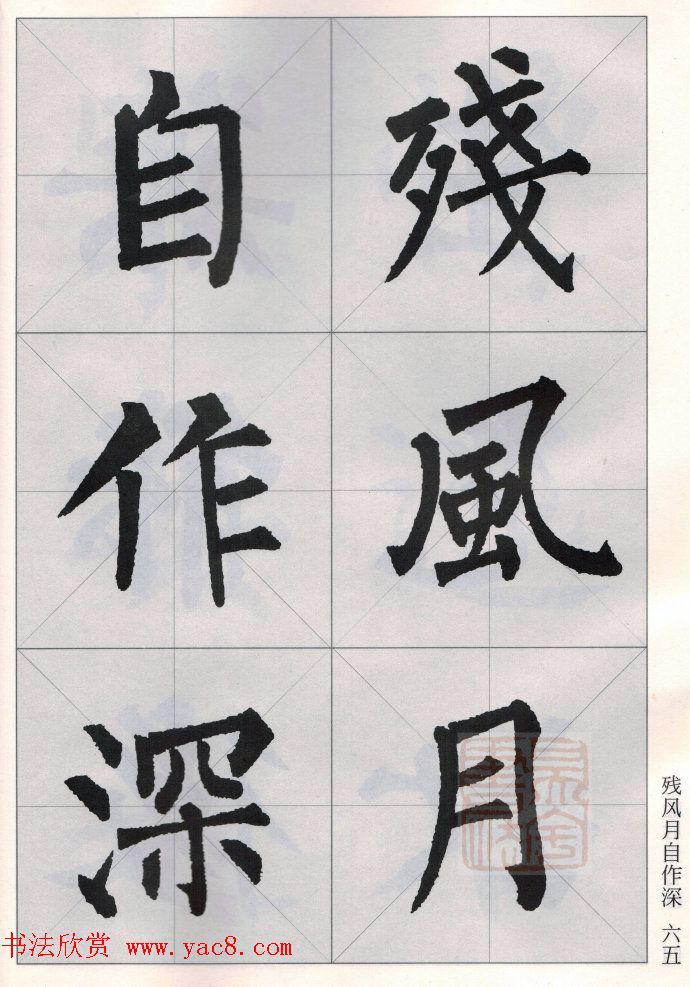 殘風月
自作深
残风月自作深 六五
书法欣赏 www.yac8.com